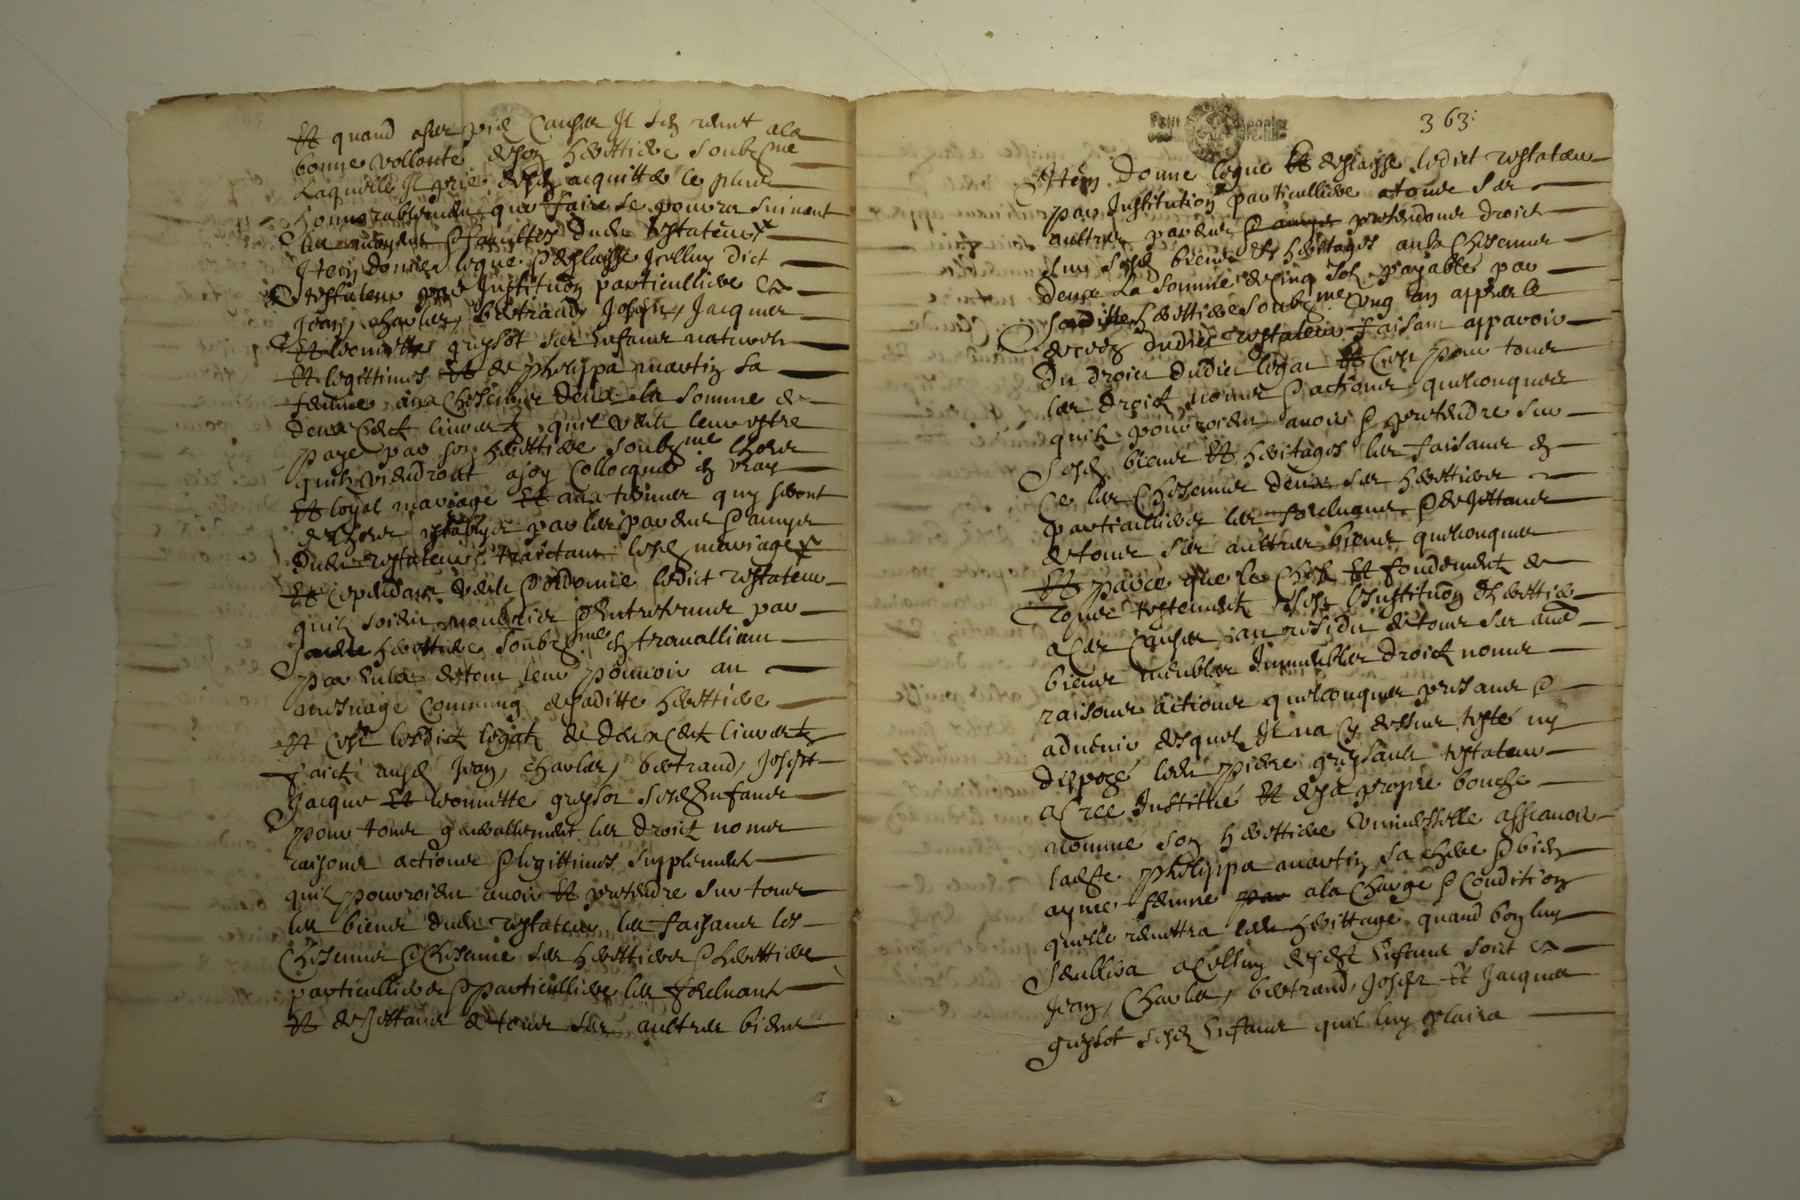 Et quand a ses Causes Il sen remet a la
bonne vollonte de son herettiere soubzme
Laquelle Il prie de sen acquitter le plus
honnorablement que faire se pourra suivant
les facultes dudict testateur
Item donne legue & deslaisse Icelluy dict
testateur par Institution particulliere a
Jean, charles, bertrand, Joseph, Jacques
Et leonnette greysot ses enfans naturels
Et legittimes Et de phelippa martin sa
femme a un Chascun deux la somme de
deux Cents livres quil veult leur estre
paye par son herettiere soubzme lhors
quilz viendront a soy Collocquer en vray
Et loyal mariage Et aux termes quy seront
de lhors establys par les parens & amys
dudict testateur traictant lesd mariages
Et cependant veult & ordonne ledict testateur
quilz soient nourris & entretenus par
sadicte herettiere soubzme en travalliant
par eulx de tout leur pouvoir au
mesnage Commung de saditte herettiere
Et C'est lesdicts legatz de deux Cents livres
faict ausd Jean, charles, bertrand, Joseph
Jacques Et leonnette greysot sesd Enfans
pour tous generallement les droicts noms
raisons actions & legittimes supplements
quilz pourroient avoir Et pretendre sur tous
les biens dudict testateur les faisant les
Chascuns & Chascune ses herettiers & herettiere
particulliers & particulliere les forcluant
Et dejettant de tous ses aultres biens
363
Item donne legue Et deslaisse ledict testateur
par Institution particulliere a tous ses
aultres parens pretendans droict
en sesd biens & heritages a un Chascun
deux La somme de cinq solz payable par
saditte herettiere soubzme ung an appres le
deces dudict testateur faisant apparoir
du droict dudict legat Et C'est pour tous
les droicts noms & actions quelconques
quilz pourroient avoir & pretendre sur
sesd biens Et heritages les faisant en
Ce les Chascuns deux ses herettiers
particulliers les forcluant & dejettant
de tous ses aultres biens quelconques
Et parce que le Chef Et fondement de
tous testements Est l'Institution d'herettier
a Ces Causes au residu de tous ses aultres
biens meubles Immeubles droicts noms
raisons actions quelconques presans &
advenir desquels Il na Cy dessus teste ny
dispoze ledict pierre greysault testateur
a Cree Institue Et de sa propre bouche
nomme son herettiere universelle asscavoir
ladicte phelippa martin sa chere & bien
ayme femme a la Charge & Condition
quelle remettra ledict herittage quand bon luy
semblera a Celluy de sesd Enfans soit a
Jean, Charles, bertrand, Joseph Et Jacques
greysot sesd Enfans quil luy plaira